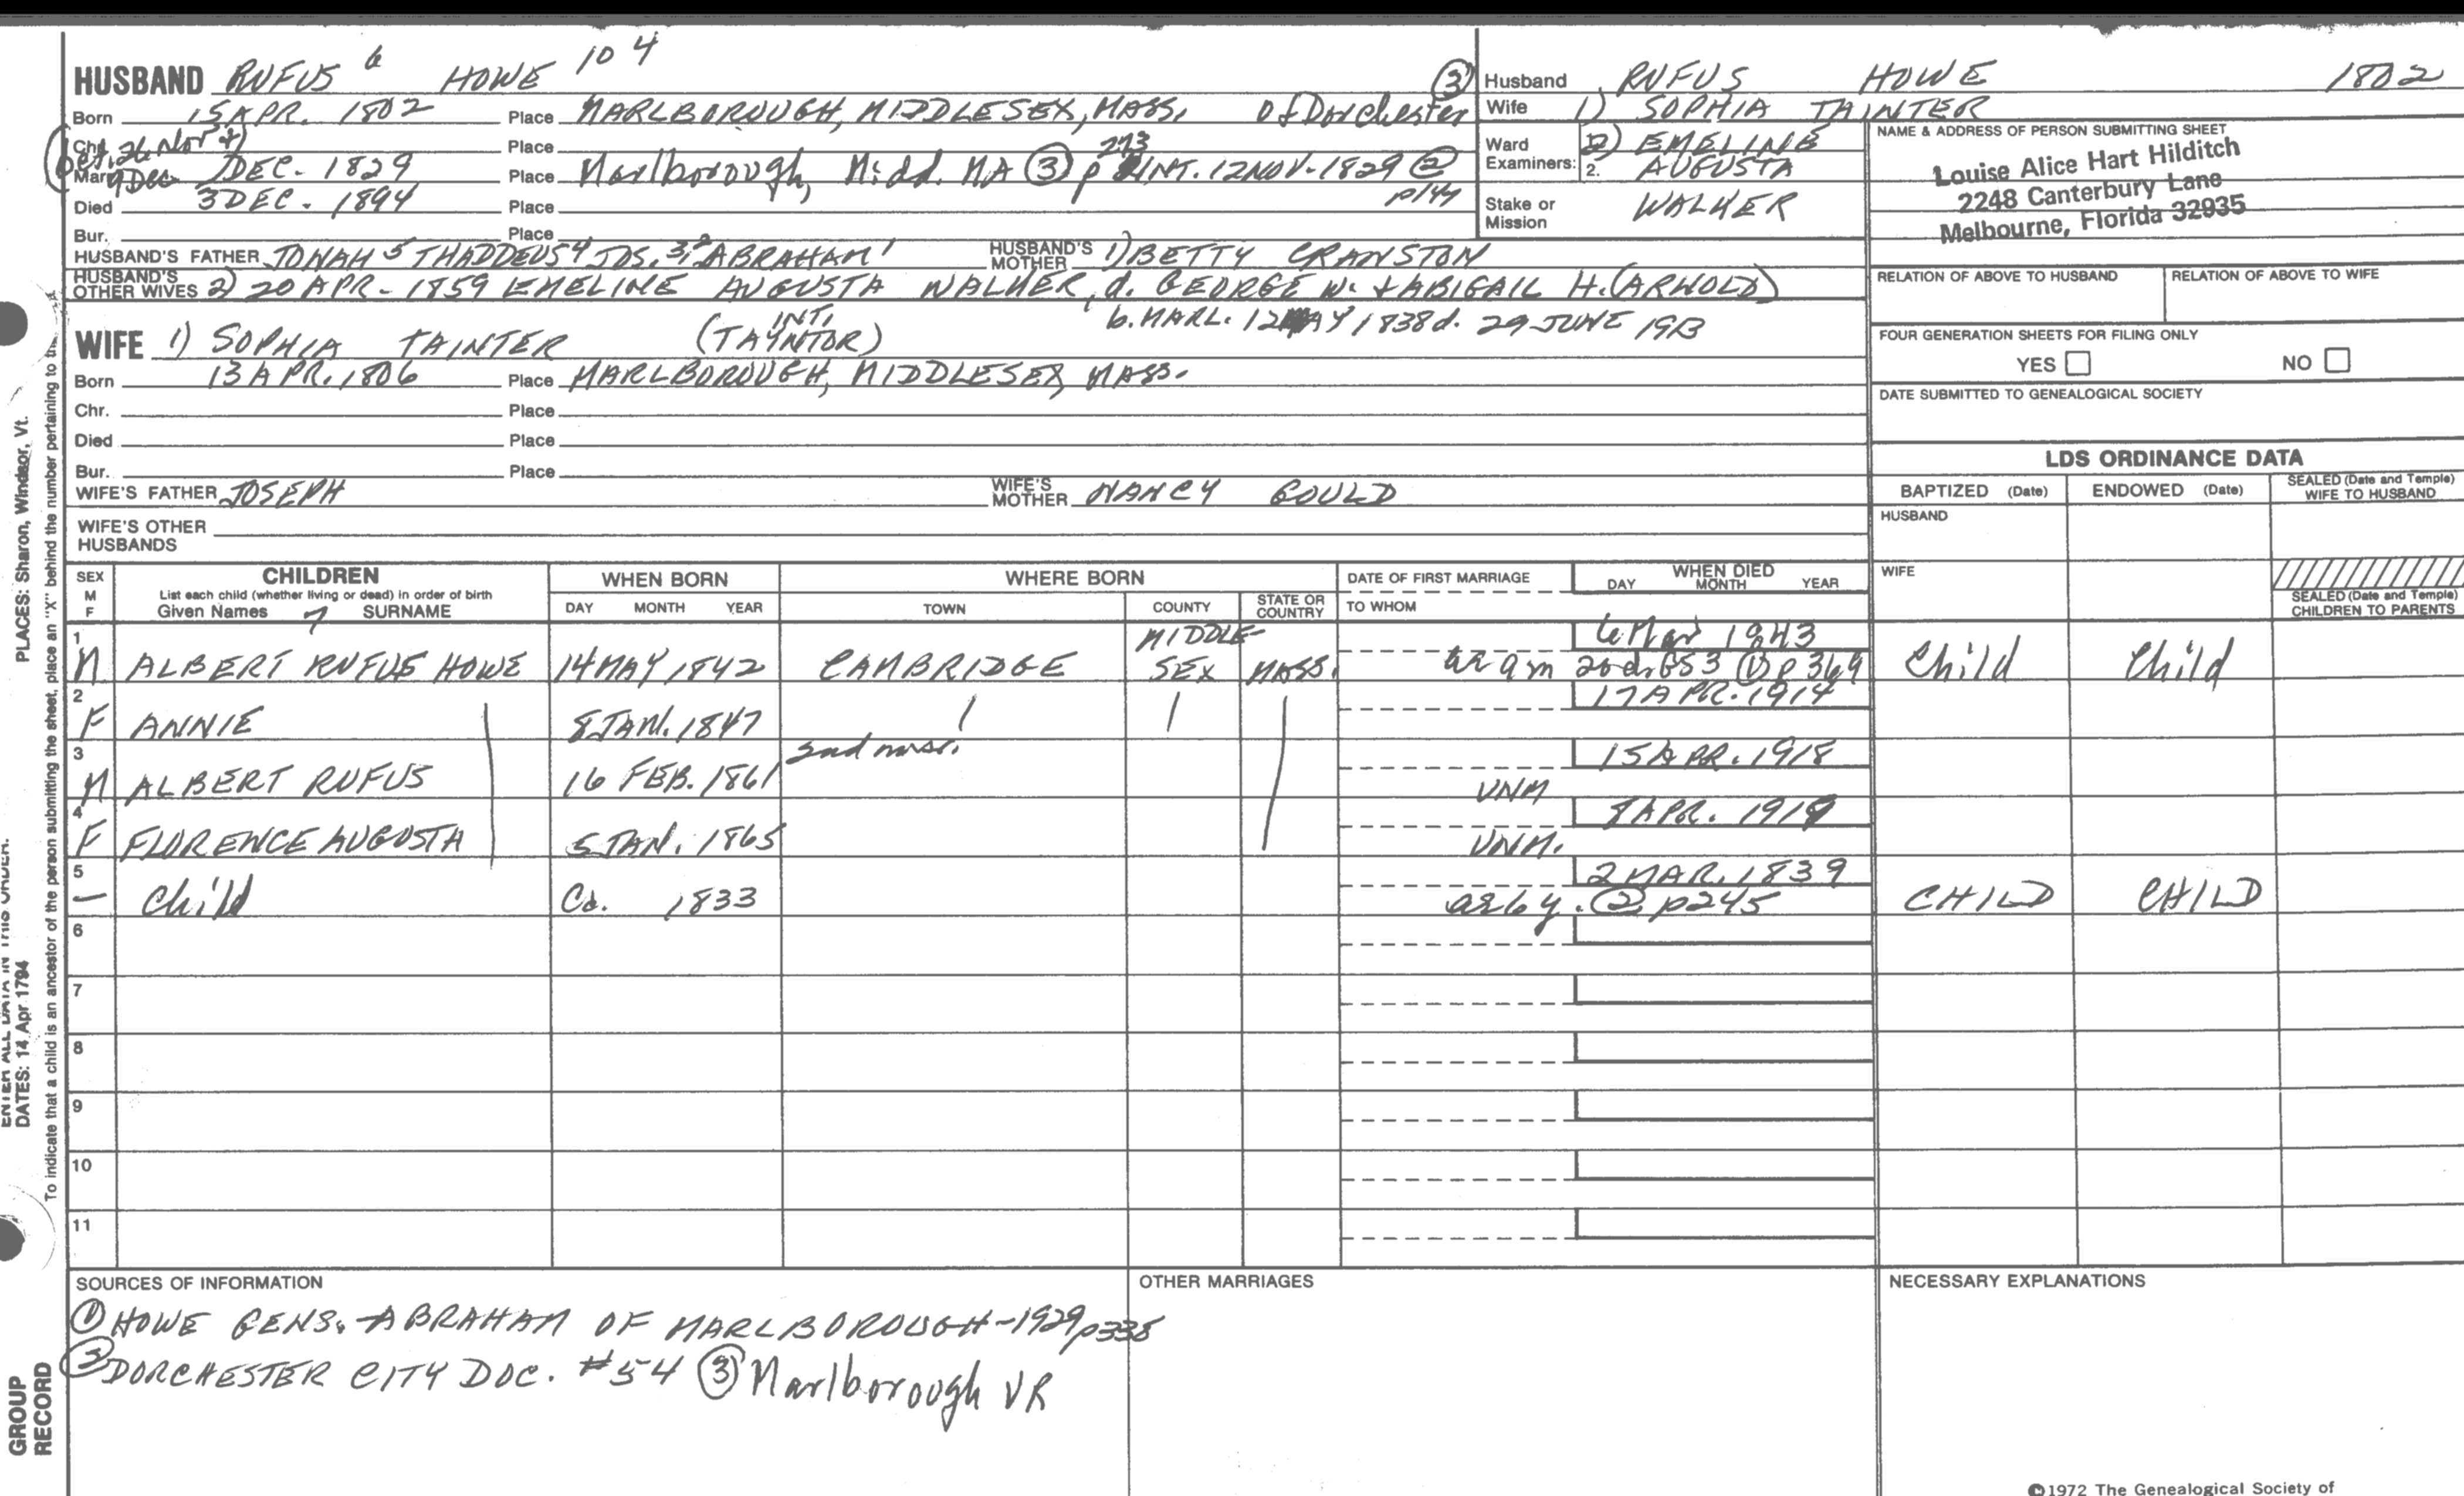 HUSBAND RUFUS 6 HOWE 10 4
Born 15 APR. 1802 Place MARLBOROUGH, MIDDLESEX, MASS. of Dorchester (3)
Chr. Place
(bet. 26 Nov &
Marr. 9 Dec) DEC. 1829 Place Marlborough, Midd. MA (3) p 273 INT. 12 NOV. 1829 (2) p144
Died 3 DEC. 1894 Place
Bur. Place
HUSBAND'S FATHER JONAH 5 THADDEUS 4 JOS. 3, 2 ABRAHAM 1 HUSBAND'S MOTHER 1) BETTY CRANSTON
HUSBAND'S OTHER WIVES 2) 20 APR - 1859 EMELINE AUGUSTA WALKER, d. GEORGE W. + ABIGAIL H. (ARNOLD)
b. MARL. 12 MAY 1838 d. 29 JUNE 1913
WIFE 1) SOPHIA TAINTER (TAYNTOR) INT.
Born 13 APR. 1806 Place MARLBOROUGH, MIDDLESEX, MASS.
Chr. Place
Died Place
Bur. Place
WIFE'S FATHER JOSEPH WIFE'S MOTHER NANCY GOULD
WIFE'S OTHER HUSBANDS
Husband RUFUS HOWE 1802
Wife 1) SOPHIA TAINTER
Ward Examiners: 2) EMELINE
2. AUGUSTA
Stake or Mission WALKER
NAME & ADDRESS OF PERSON SUBMITTING SHEET
Louise Alice Hart Hilditch
2248 Canterbury Lane
Melbourne, Florida 32935
RELATION OF ABOVE TO HUSBAND RELATION OF ABOVE TO WIFE
FOUR GENERATION SHEETS FOR FILING ONLY
YES NO
DATE SUBMITTED TO GENEALOGICAL SOCIETY
LDS ORDINANCE DATA
BAPTIZED (Date) ENDOWED (Date) SEALED (Date and Temple) WIFE TO HUSBAND
HUSBAND
WIFE
SEALED (Date and Temple) CHILDREN TO PARENTS
SEX M F CHILDREN WHEN BORN WHERE BORN DATE OF FIRST MARRIAGE WHEN DIED
List each child (whether living or dead) in order of birth
Given Names 7 SURNAME DAY MONTH YEAR TOWN COUNTY STATE OR COUNTRY TO WHOM DAY MONTH YEAR
1 M ALBERT RUFUS HOWE 14 MAY 1842 CAMBRIDGE MIDDLE-SEX MASS. 6 Mar 1843
ae 9m 20d. GS3 (1) p 369 Child Child
2 F ANNIE 8 JAN. 1847 17 APR. 1914
2nd marr.
3 M ALBERT RUFUS 16 FEB. 1861 UNM 15 APR. 1918
4 F FLORENCE AUGUSTA 5 JAN. 1865 UNM. 8 APR. 1919
5 — Child Ca. 1833 2 MAR. 1839
ae 6 y. (2) p245 CHILD CHILD
6
7
8
9
10
11
SOURCES OF INFORMATION
(1) HOWE GENS. ABRAHAM OF MARLBOROUGH - 1929 p338
(2) DORCHESTER CITY DOC. #54 (3) Marlborough VR
OTHER MARRIAGES
NECESSARY EXPLANATIONS
©1972 The Genealogical Society of
PLACES: Sharon, Windsor, Vt.
ENTER ALL DATA IN THIS ORDER.
DATES: 14 Apr 1794
To indicate that a child is an ancestor of the person submitting the sheet, place an "X" behind the number pertaining to
GROUP RECORD